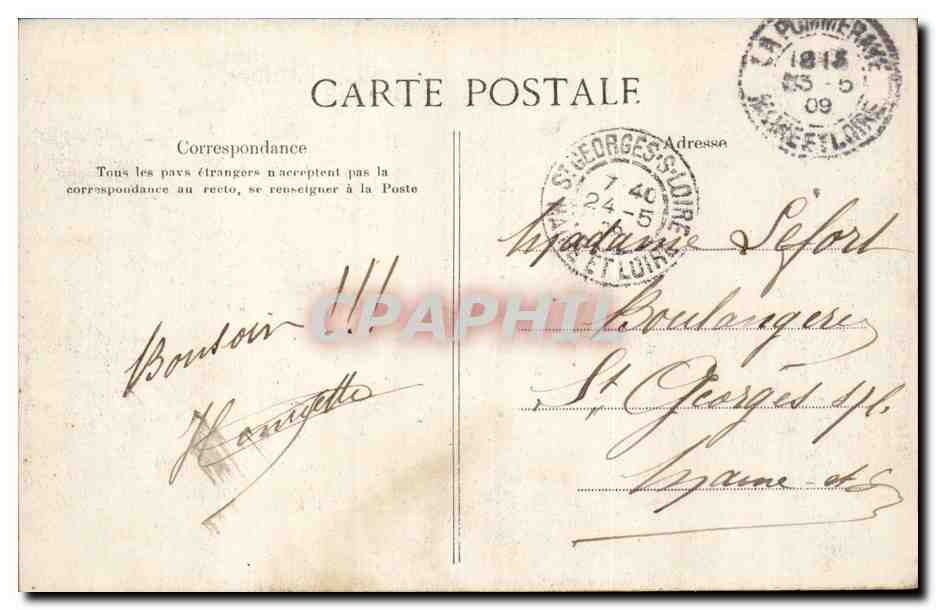 CARTE POSTALE
Correspondance
Tous les pays étrangers n'acceptent pas la
correspondance au recto, se renseigner à la Poste
Bonsoir !!!
Adresse
Madame Lefort
Boulangere
St Georges s/l.
Maine-et-
LA POMMERAYE
5 09
MAINE-ET-LOIRE
ST GEORGES-S-LOIRE
7 40
24 - 5
MAINE ET LOIRE
CPAPHIL